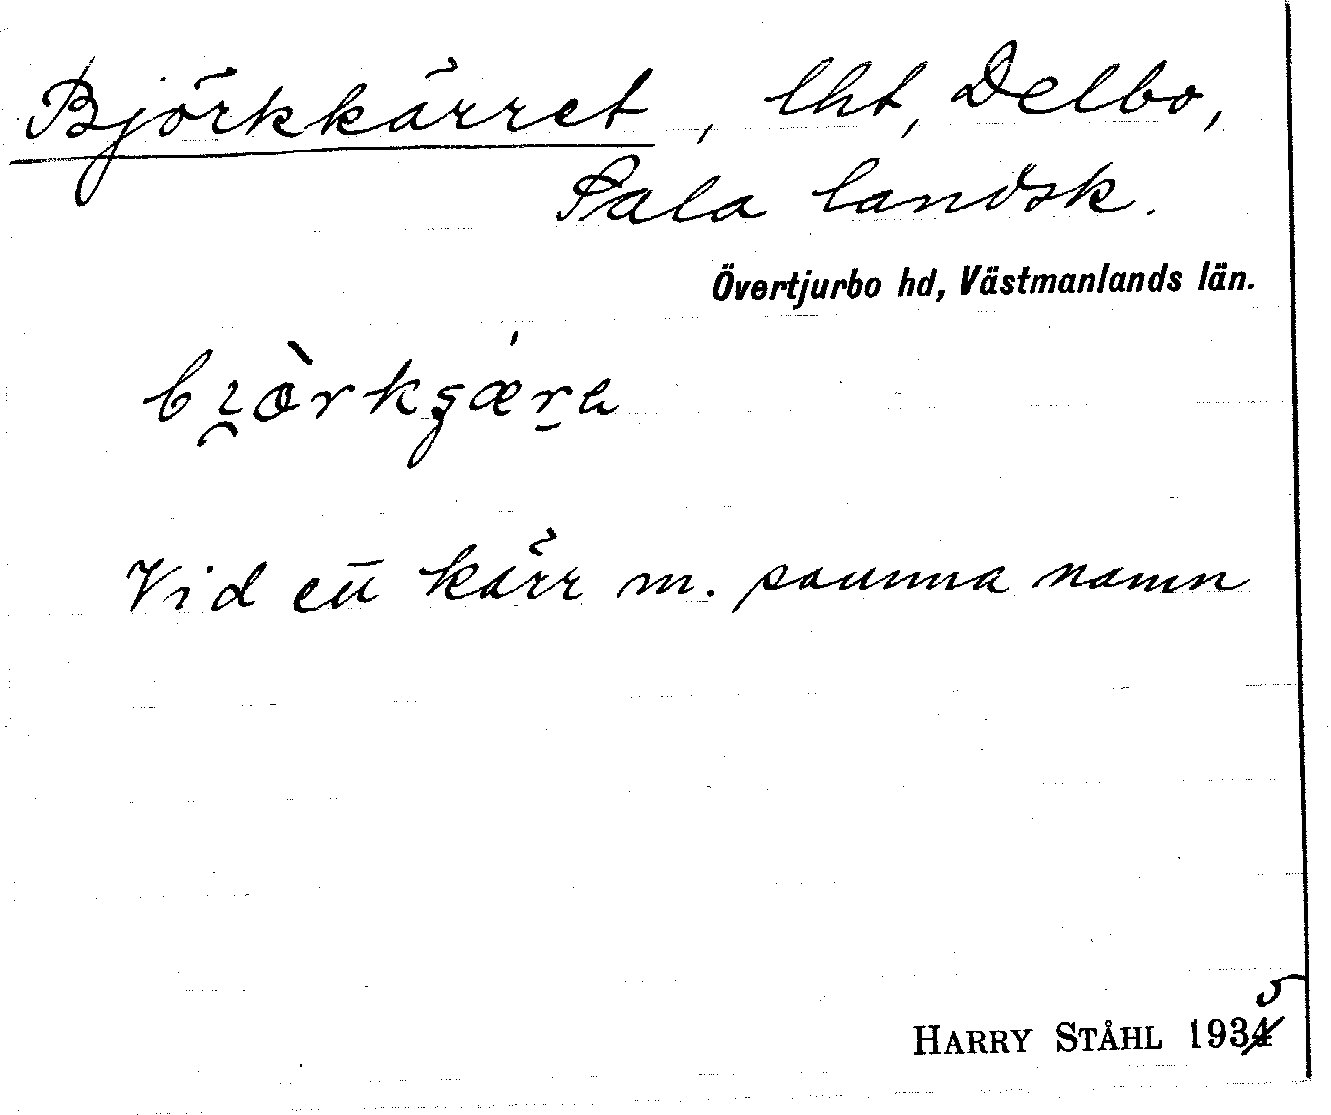 Björkkärret, lht, Delbo,
Sala landsk.
Övertjurbo hd, Västmanlands län.
Vid ett kärr m. samma namn
HARRY STÅHL 1935